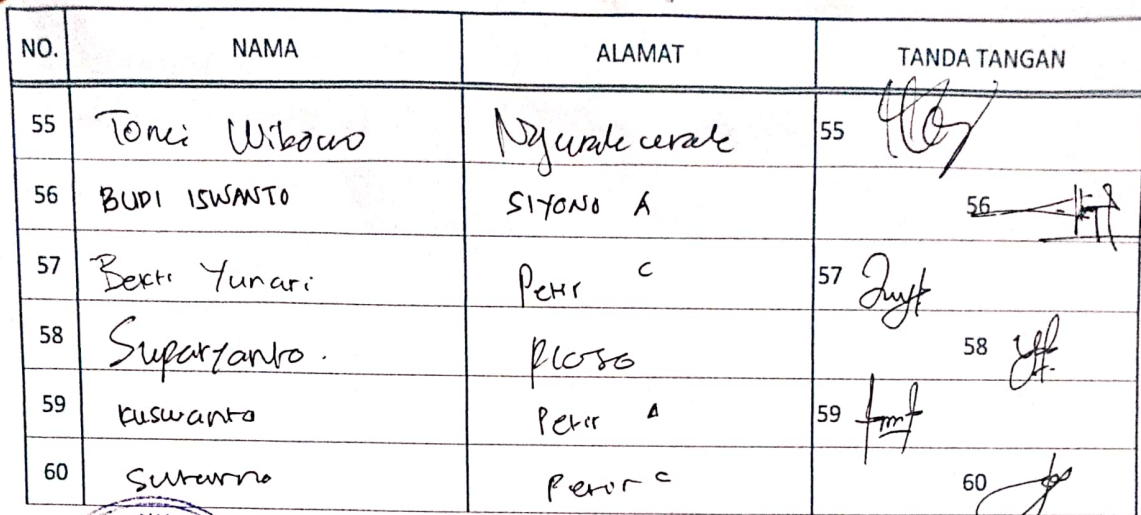 NO. NAMA ALAMAT TANDA TANGAN
55 Toni Wibowo 55
56 BUDI ISWANTO SIYONO A 56
57 Bekti Yunari Petir C 57
58 Suparyanto. Ploso 58
59 Kuswanto Petir A 59
60 Sutarno Petir C 60